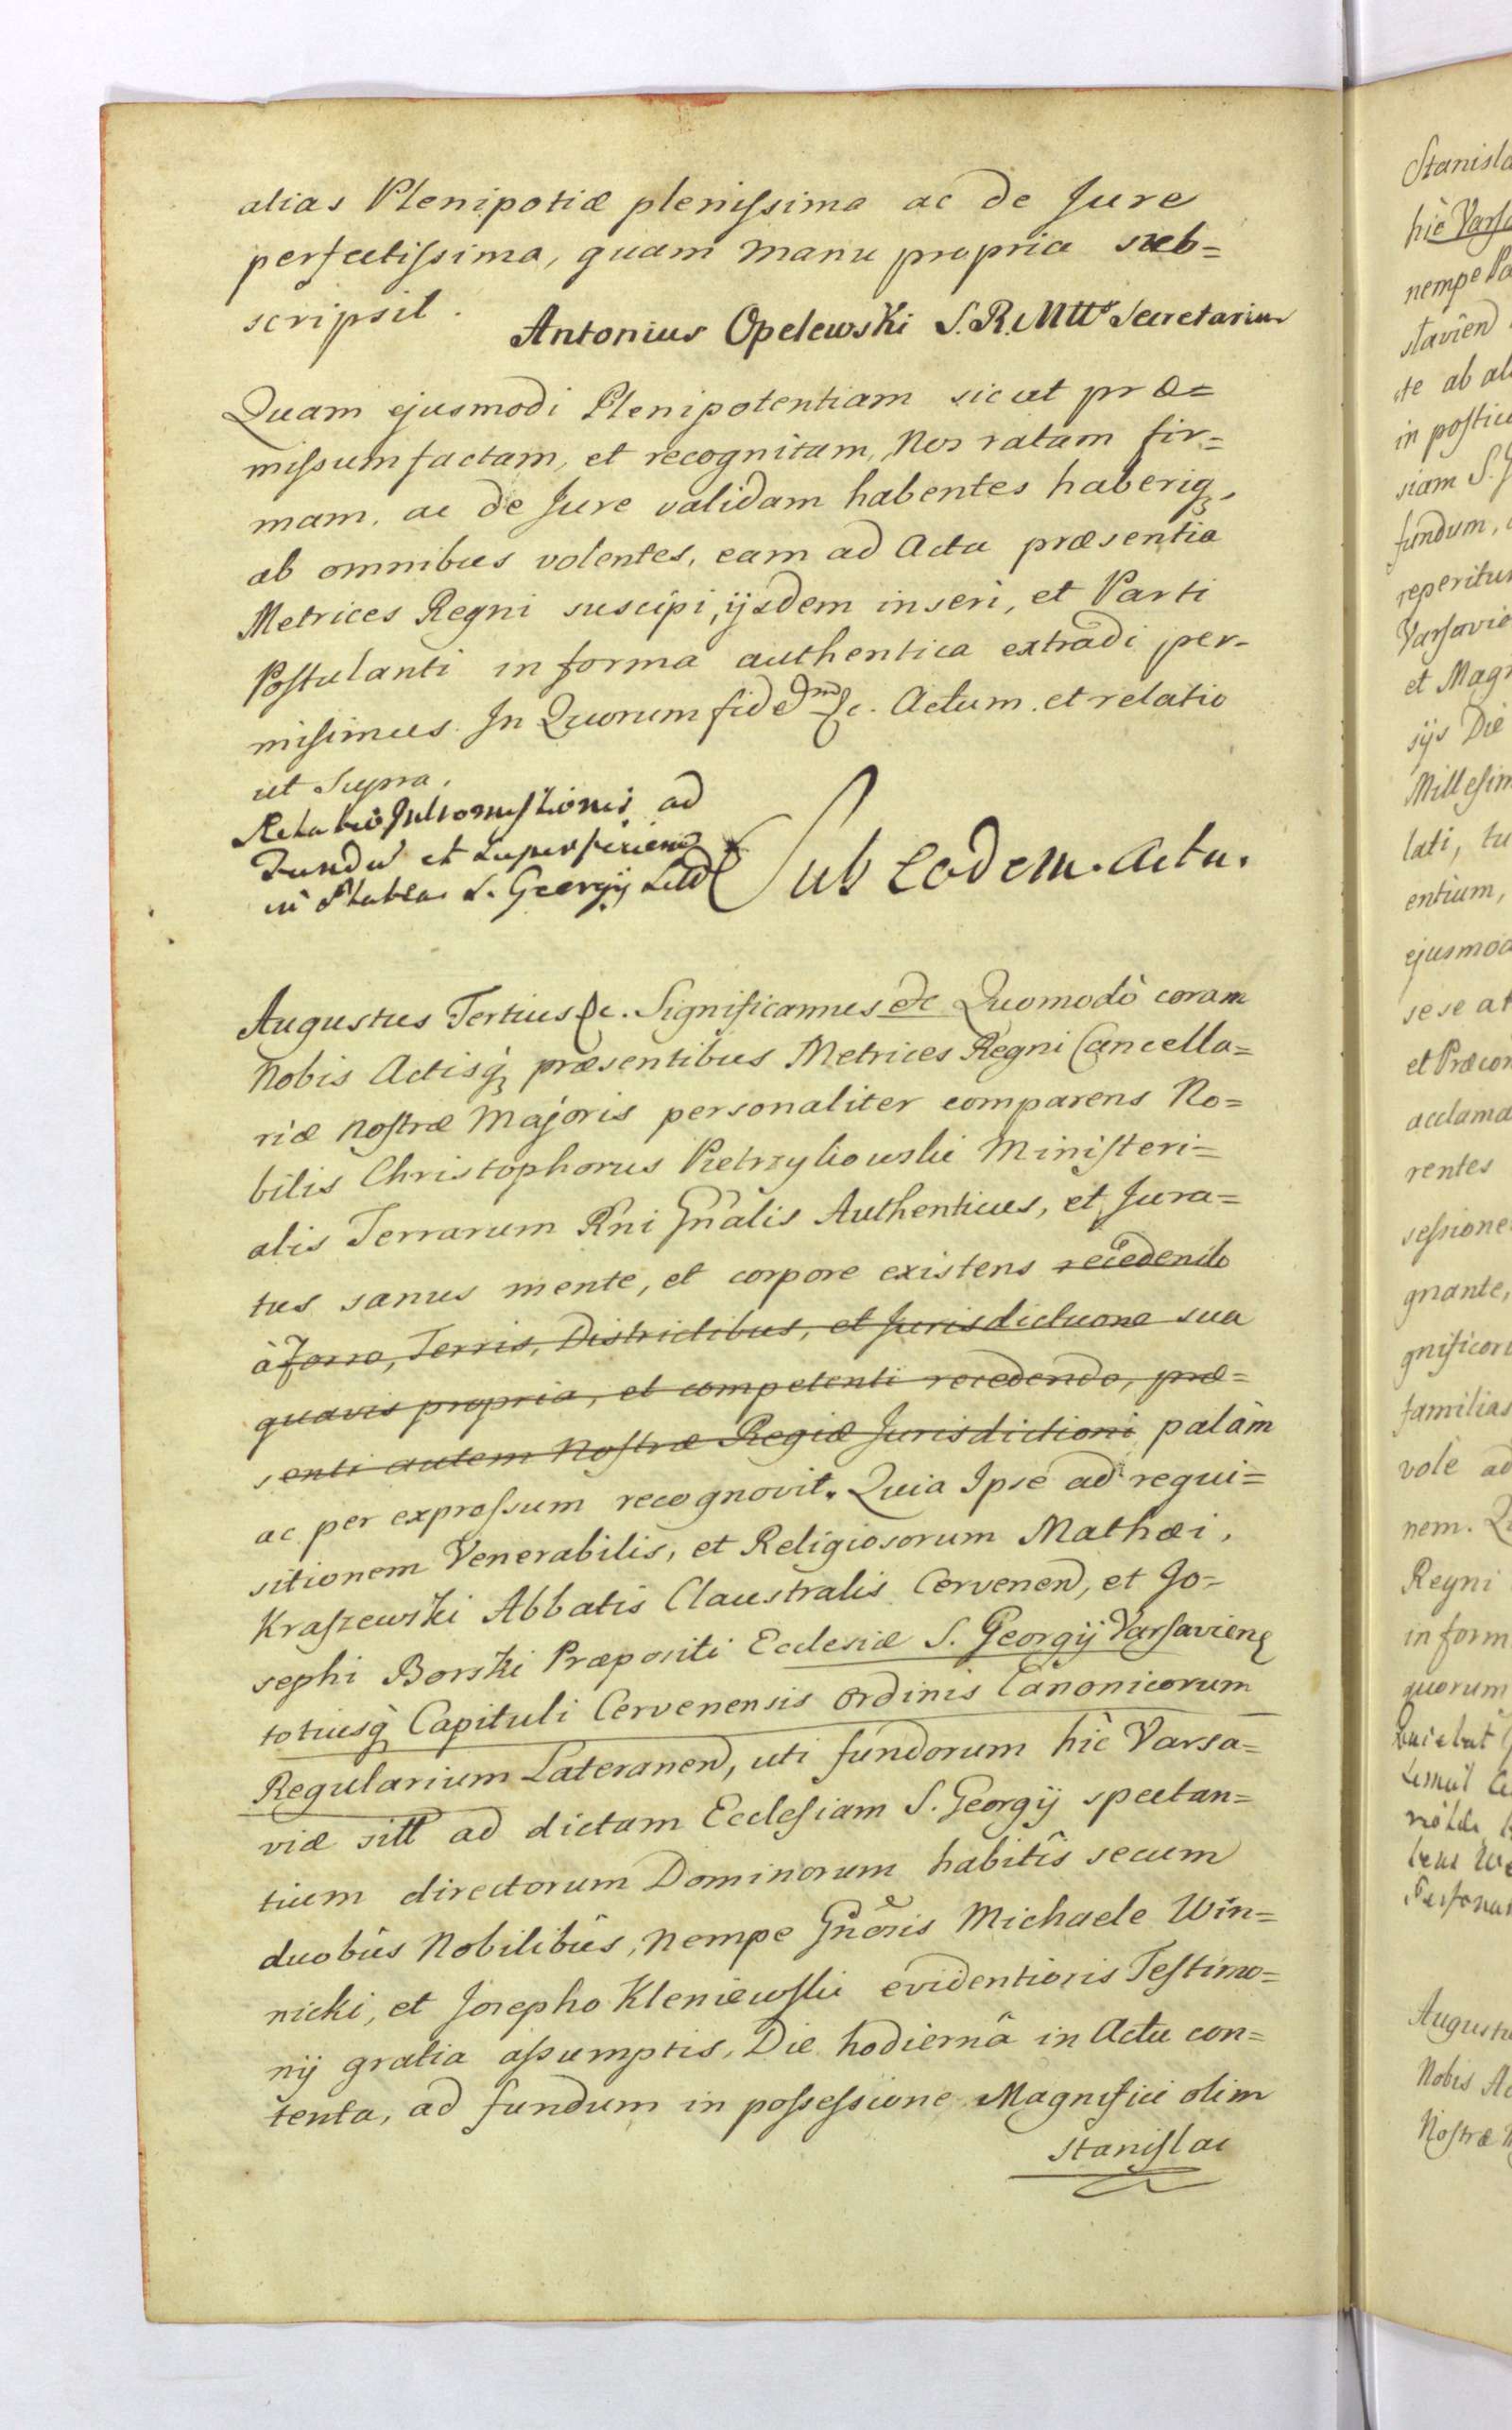 alias Plenipotiæ plenissima ac de Jure
perfectissima, quam manu propria sub=
scripsit.
Antonius Opelewski S. R. Mttis Secretarius
Quam ejusmodi Plenipotentiam sicut præ=
missum factam, et recognitam, Nos ratam fir=
mam, ac de Jure validam habentes haberiq,
ab omnibus volentes, eam ad Acta præsentia
Metrices Regni suscipi, ijsdem inseri, et Parti
Postulanti in forma authentica extradi per=
misimus. In Quorum fidem &c. Actum et relatio
ut Supra.
Relatio Intromissionis ad
Fundū et Superficiem
in Platea S. Georgij
Sub Eodem Actu.
Augustus Tertius &c. Significamus etc Quomodò coram
Nobis Actisq, præsentibus Metrices Regni Cancella=
riæ Nostræ Majoris personaliter comparens No=
bilis Christophorus Pietrzykowski Ministeri=
alis Terrarum Rni Gnalis Authenticus, et Jura=
tus sanus mente, et corpore existens recedendo
à Foro, Terris, Districtibus, et Jurisdictione sua
quavis propria, et competenti recedendo, præ=
senti autem Nostræ Regiæ Jurisdictioni palàm
ac per expressum recognovit. Quia Ipse ad requi=
sitionem Venerabilis, et Religiosorum Mathæi,
Kraszewski Abbatis Claustralis Cervenen, et Jo=
sephi Borski Præpositi Ecclesiæ S. Georgij Varsavien
totiusq, Capituli Cervenensis Ordinis Canonicorum
Regularium Lateranen, uti fundorum hic Varsa=
viæ sitt ad dictam Ecclesiam S. Georgij spectan=
tium directorum Dominorum habitîs secum
duobûs Nobilibûs, nempe Gnosis Michaele Win=
nicki, et Josepho Kleniewski evidentioris Testimo=
nij gratia assumptis, Die hodiernâ in Actu con=
tenta, ad fundum in possessione Magnifici olim
Stanislai